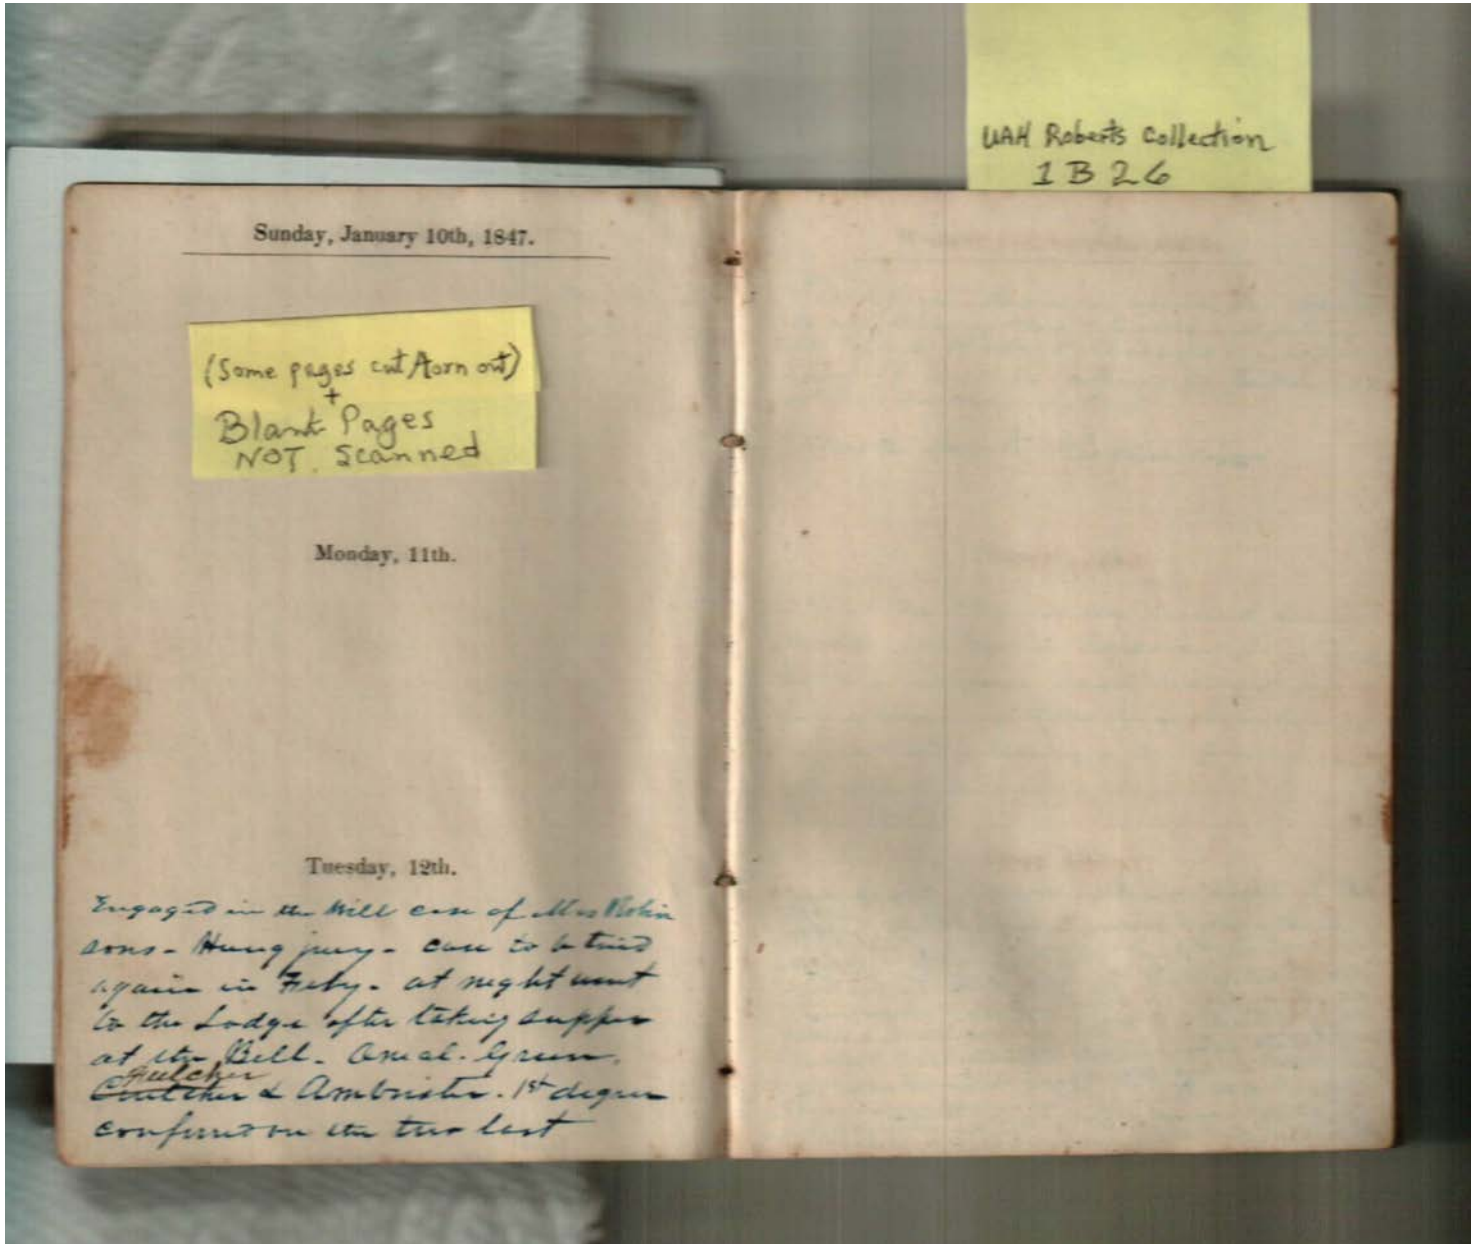 UAH Roberts Collection
1B26
Sunday, January 10th, 1847.
(Some pages cut/torn out)
+
Blank Pages
NOT Scanned
Monday, 11th.
Tuesday, 12th.
Engaged in the Will case of Mrs Robin
sons - Hung jury - case to be tried
again in Feby - at night went
to the Lodge after taking supper
at the Bell - Green,
Fulcher
Crutcher & Ambrister. 1st degree
conferred on the two last